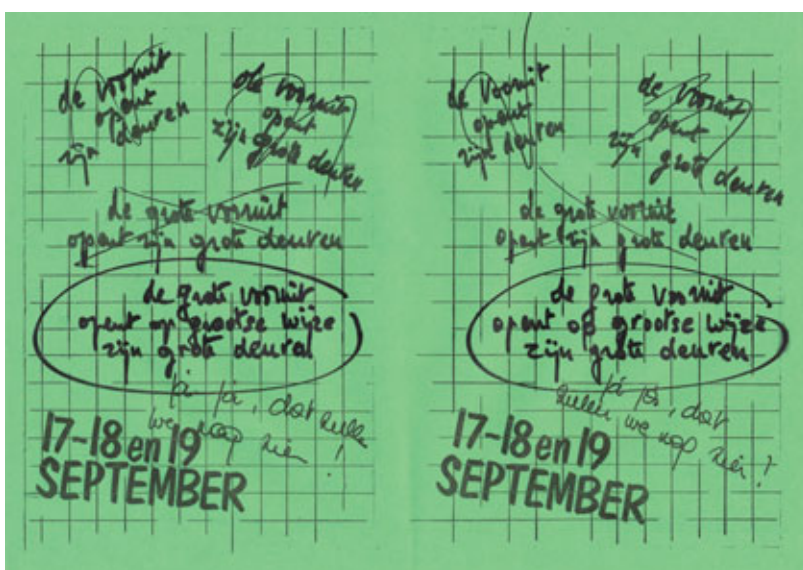 de vooruit
opent
zijn deuren
de vooruit
opent
zijn grote deuren
de grote vooruit
opent zijn grote deuren
de grote vooruit
opent op grootse wijze
zijn grote deuren
ja ja, dat zullen
we nog zien !
17-18 en 19
SEPTEMBER
de vooruit
opent
zijn deuren
de vooruit
opent
zijn grote deuren
de grote vooruit
opent zijn grote deuren
de grote vooruit
opent op grootse wijze
zijn grote deuren
ja ja, dat
zullen we nog zien !
17-18 en 19
SEPTEMBER